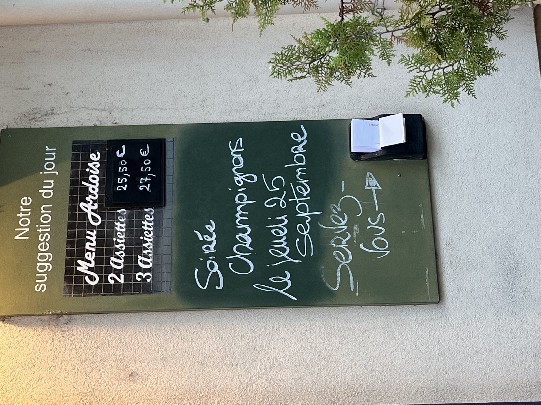 Notre
suggestion du jour
Menu Ardoise
2 Assiettes 25,50 €
3 Assiettes 27,50 €
Soirée
Champignons
le jeudi 25
Septembre
Servez-
Vous →